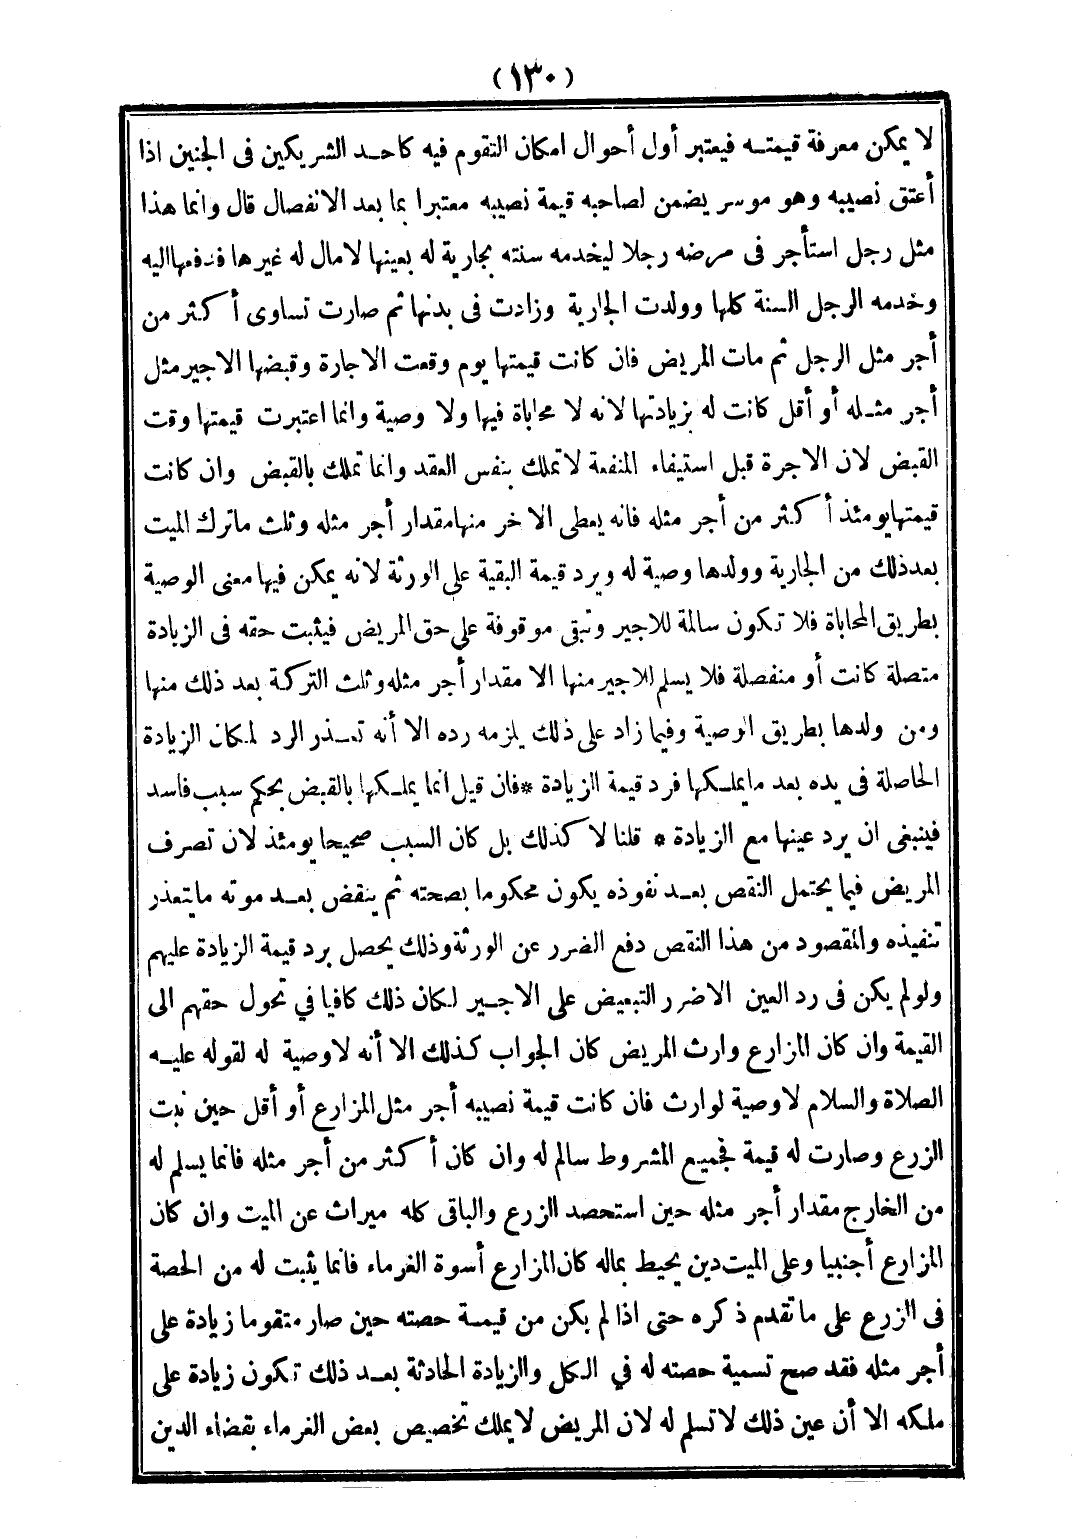 (١٣٠)
لا يمكن معرفة قيمتـه فيعتبر أول أحوال امكان التقوم فيه كاحد الشريكين فى الجنين اذا
أعتق نصيبه وهو موسر يضمن لصاحبه قيمة نصيبه معتبرا بما بعد الانفصال قال وانما هذا
مثل رجل استأجر فى مرضه رجلا ليخدمه سنته بجارية له بعينها لامال له غيرها فدفعهااليه
وخدمه الرجل السنة كلها وولدت الجارية وزادت فى بدنها ثم صارت تساوى أكثر من
أجر مثل الرجل ثم مات المريض فان كانت قيمتها يوم وقعت الاجارة وقبضها الاجير مثل
أجر مثـله أو أقل كانت له بزيادتها لانه لا محاباة فيها ولا وصية وانما اعتبرت قيمتها وقت
القبض لان الاجرة قبل استيفاء المنفعة لاتملك بنفس العقد وانما تملك بالقبض وان كانت
قيمتهايومئذ أكثر من أجر مثله فانه يعطى الاخر منهامقدار أجر مثله وثلث ماترك الميت
بعدذلك من الجارية وولدها وصية له ويرد قيمة البقية على الورثة لانه يمكن فيها معنى الوصية
بطريق المحاباة فلا تكون سالمة للاجير وتبقى موقوفة على حق المريض فيثبت حقه فى الزيادة
متصلة كانت أو منفصلة فلا يسلم للاجير منها الا مقدار أجر مثله وثلث التركة بعد ذلك منها
ومن ولدها بطريق الوصية وفيما زاد على ذلك يلزمه رده الا أنه تعـذر الرد لمكان الزيادة
الحاصلة فى يده بعد مايملـكها فرد قيمة الزيادة *فان قيل انما يملـكها بالقبض بحكم سبب فاسد
فينبغى ان يرد عينها مع الزيادة * قلنا لا كذلك بل كان السبب صحيحا يومئذ لان تصرف
المريض فيما يحتمل النقص بعـد نفوذه يكون محكوما بصحته ثم ينقض بعـد موته مايتعذر
تنفيذه والمقصود من هذا النقص دفع الضرر عن الورثة وذلك يحصل برد قيمة الزيادة عليهم
ولولم يكن فى رد العين الاضرر التبعيض على الاجـير لكان ذلك كافيا في تحول حقهم الى
القيمة وان كان المزارع وارث المريض كان الجواب كـذلك الا أنه لاوصية له لقوله عليـه
الصلاة والسلام لاوصية لوارث فان كانت قيمة نصيبه أجر مثل المزارع أو أقل حين نبت
الزرع وصارت له قيمة فجميع المشروط سالم له وان كان أكثر من أجر مثله فانما يسلم له
من الخارج مقدار أجر مثله حين استحصد الزرع والباقى كله ميراث عن الميت وان كان
المزارع أجنبيا وعلى الميت دين يحيط بماله كان المزارع أسوة الغرماء فانما يثبت له من الحصة
فى الزرع على ماتقدم ذكره حتى اذا لم يكن من قيمـة حصته حين صار متقوما زيادة على
أجر مثله فقد صح تسمية حصته له في الـكل والزيادة الحادثة بعـد ذلك تكون زيادة على
ملـكه الا أن عين ذلك لاتسلم له لان المريض لايملك تخصيص بعض الغرماء بقضاء الدين